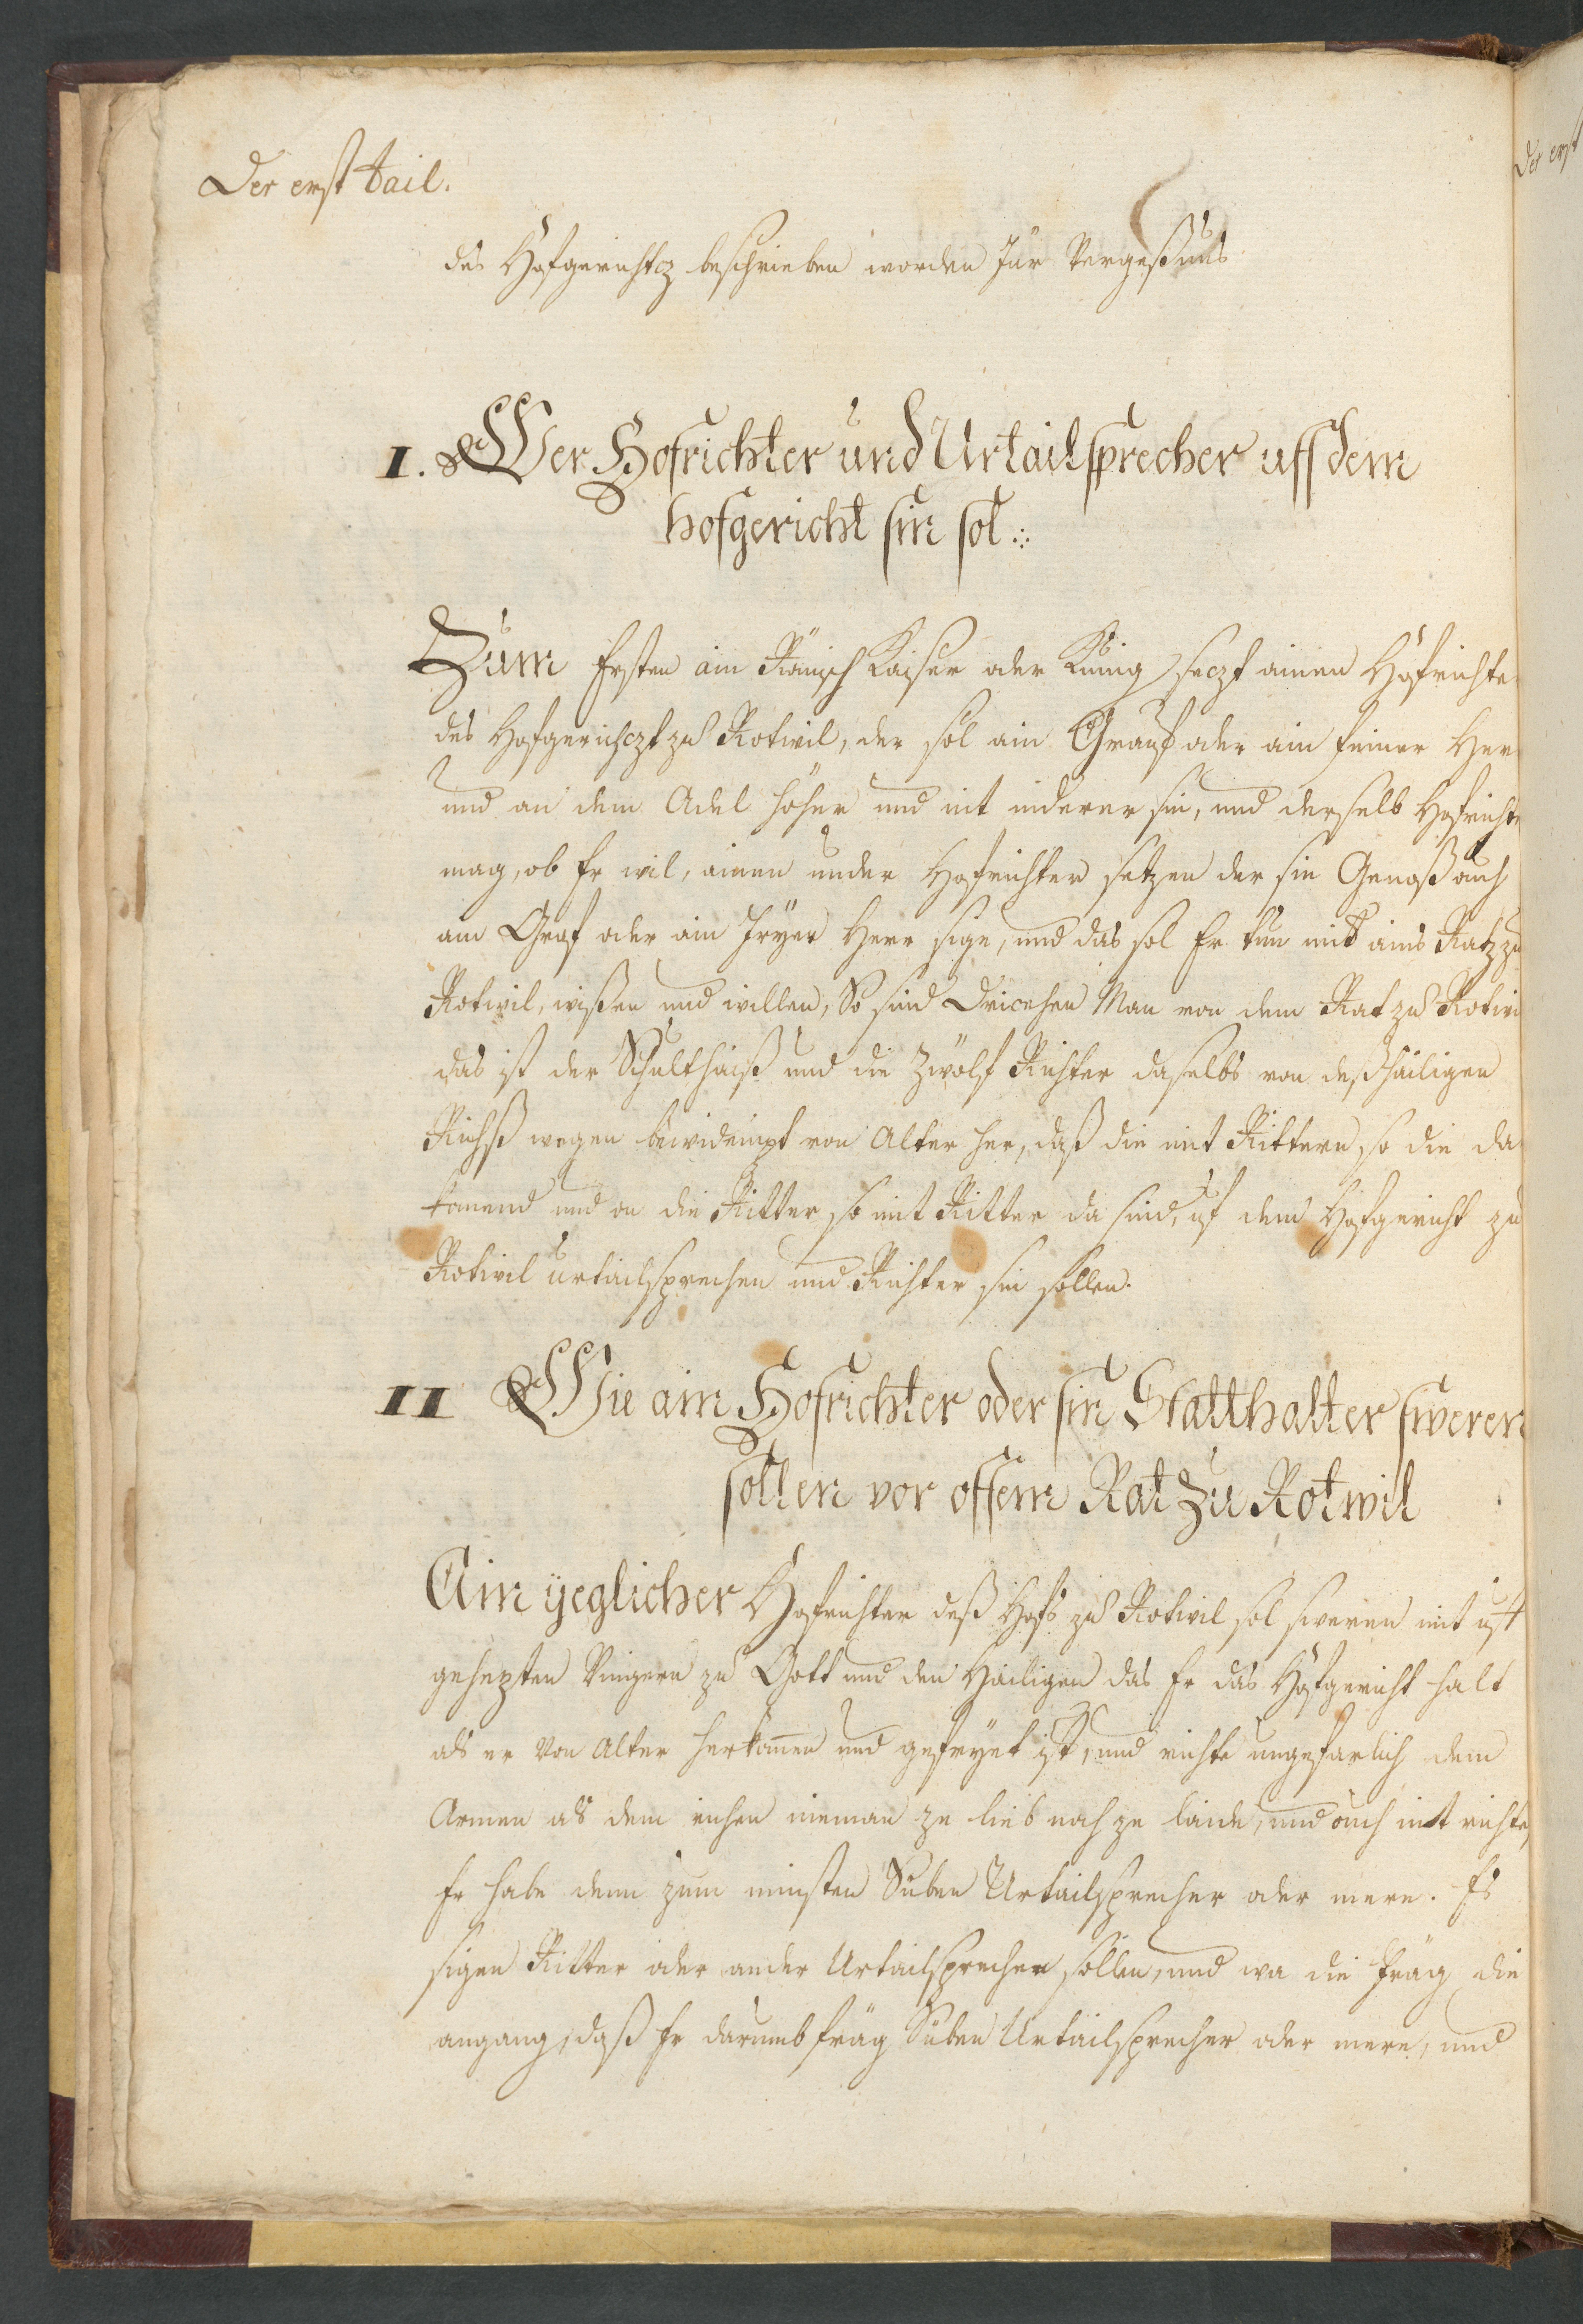 Der erst tail.
des Hofgerichtz beschrieben worden für Vergeßnus
I. Wer Hofrichter und Urtailsprecher uff dem
hofgericht sin sol
Zum Ersten ain Römisch Kaiser oder Künig seczt ainen Hofrichter
des Hofgerichczt zu Rotwil, der sol ain Grauf oder ain freiner Her
und an dem Adel höher und nit niderer sin, und derselb Hofrichte
mag, ob Er wil, ainen under Hofrichter setzen der sin Genoß auch
ain Graf oder ain fryer Herr sige, und das sol Er tun mit ains Ratz zu
Rotwil, wißen und willen, So sind Dricehen Man von dem Rat zu Rotwi
das ist der Schulthaiß und die Zwölf Richter daselbs von deß hailigen
Richß wegen bewidempt von Alter her, daß die mit Rittern so die da
komend und on die Ritter so nit Ritter da sind, uf dem Hofgericht zu
Rotwil urtailsprechen und Richter sin sollen.
II Wie ain Hofrichter oder sin Statthalter sweren
sollen vor offem Rat zu Rotwil
Ain yeglicher Hofrichter deß Hofs zu Rotwil sol sweren mit uff
gehepten Vingern zu Gott und den Hailigen das Er das Hofgericht halt
als er von Alter herkomen und gefryet ist, und richte ungefarlich dem
Armen als dem richen nieman ze lieb noch ze laide, und ouch nit richte,
Er habe denn zum minsten Süben Urtailsprecher oder mere. Es
sigen Ritter oder ander Urtailsprecher sollen, und wa die fräg die
angang, daß Er darumb fräg Süben Urtailsprecher oder mere, und
Der erst